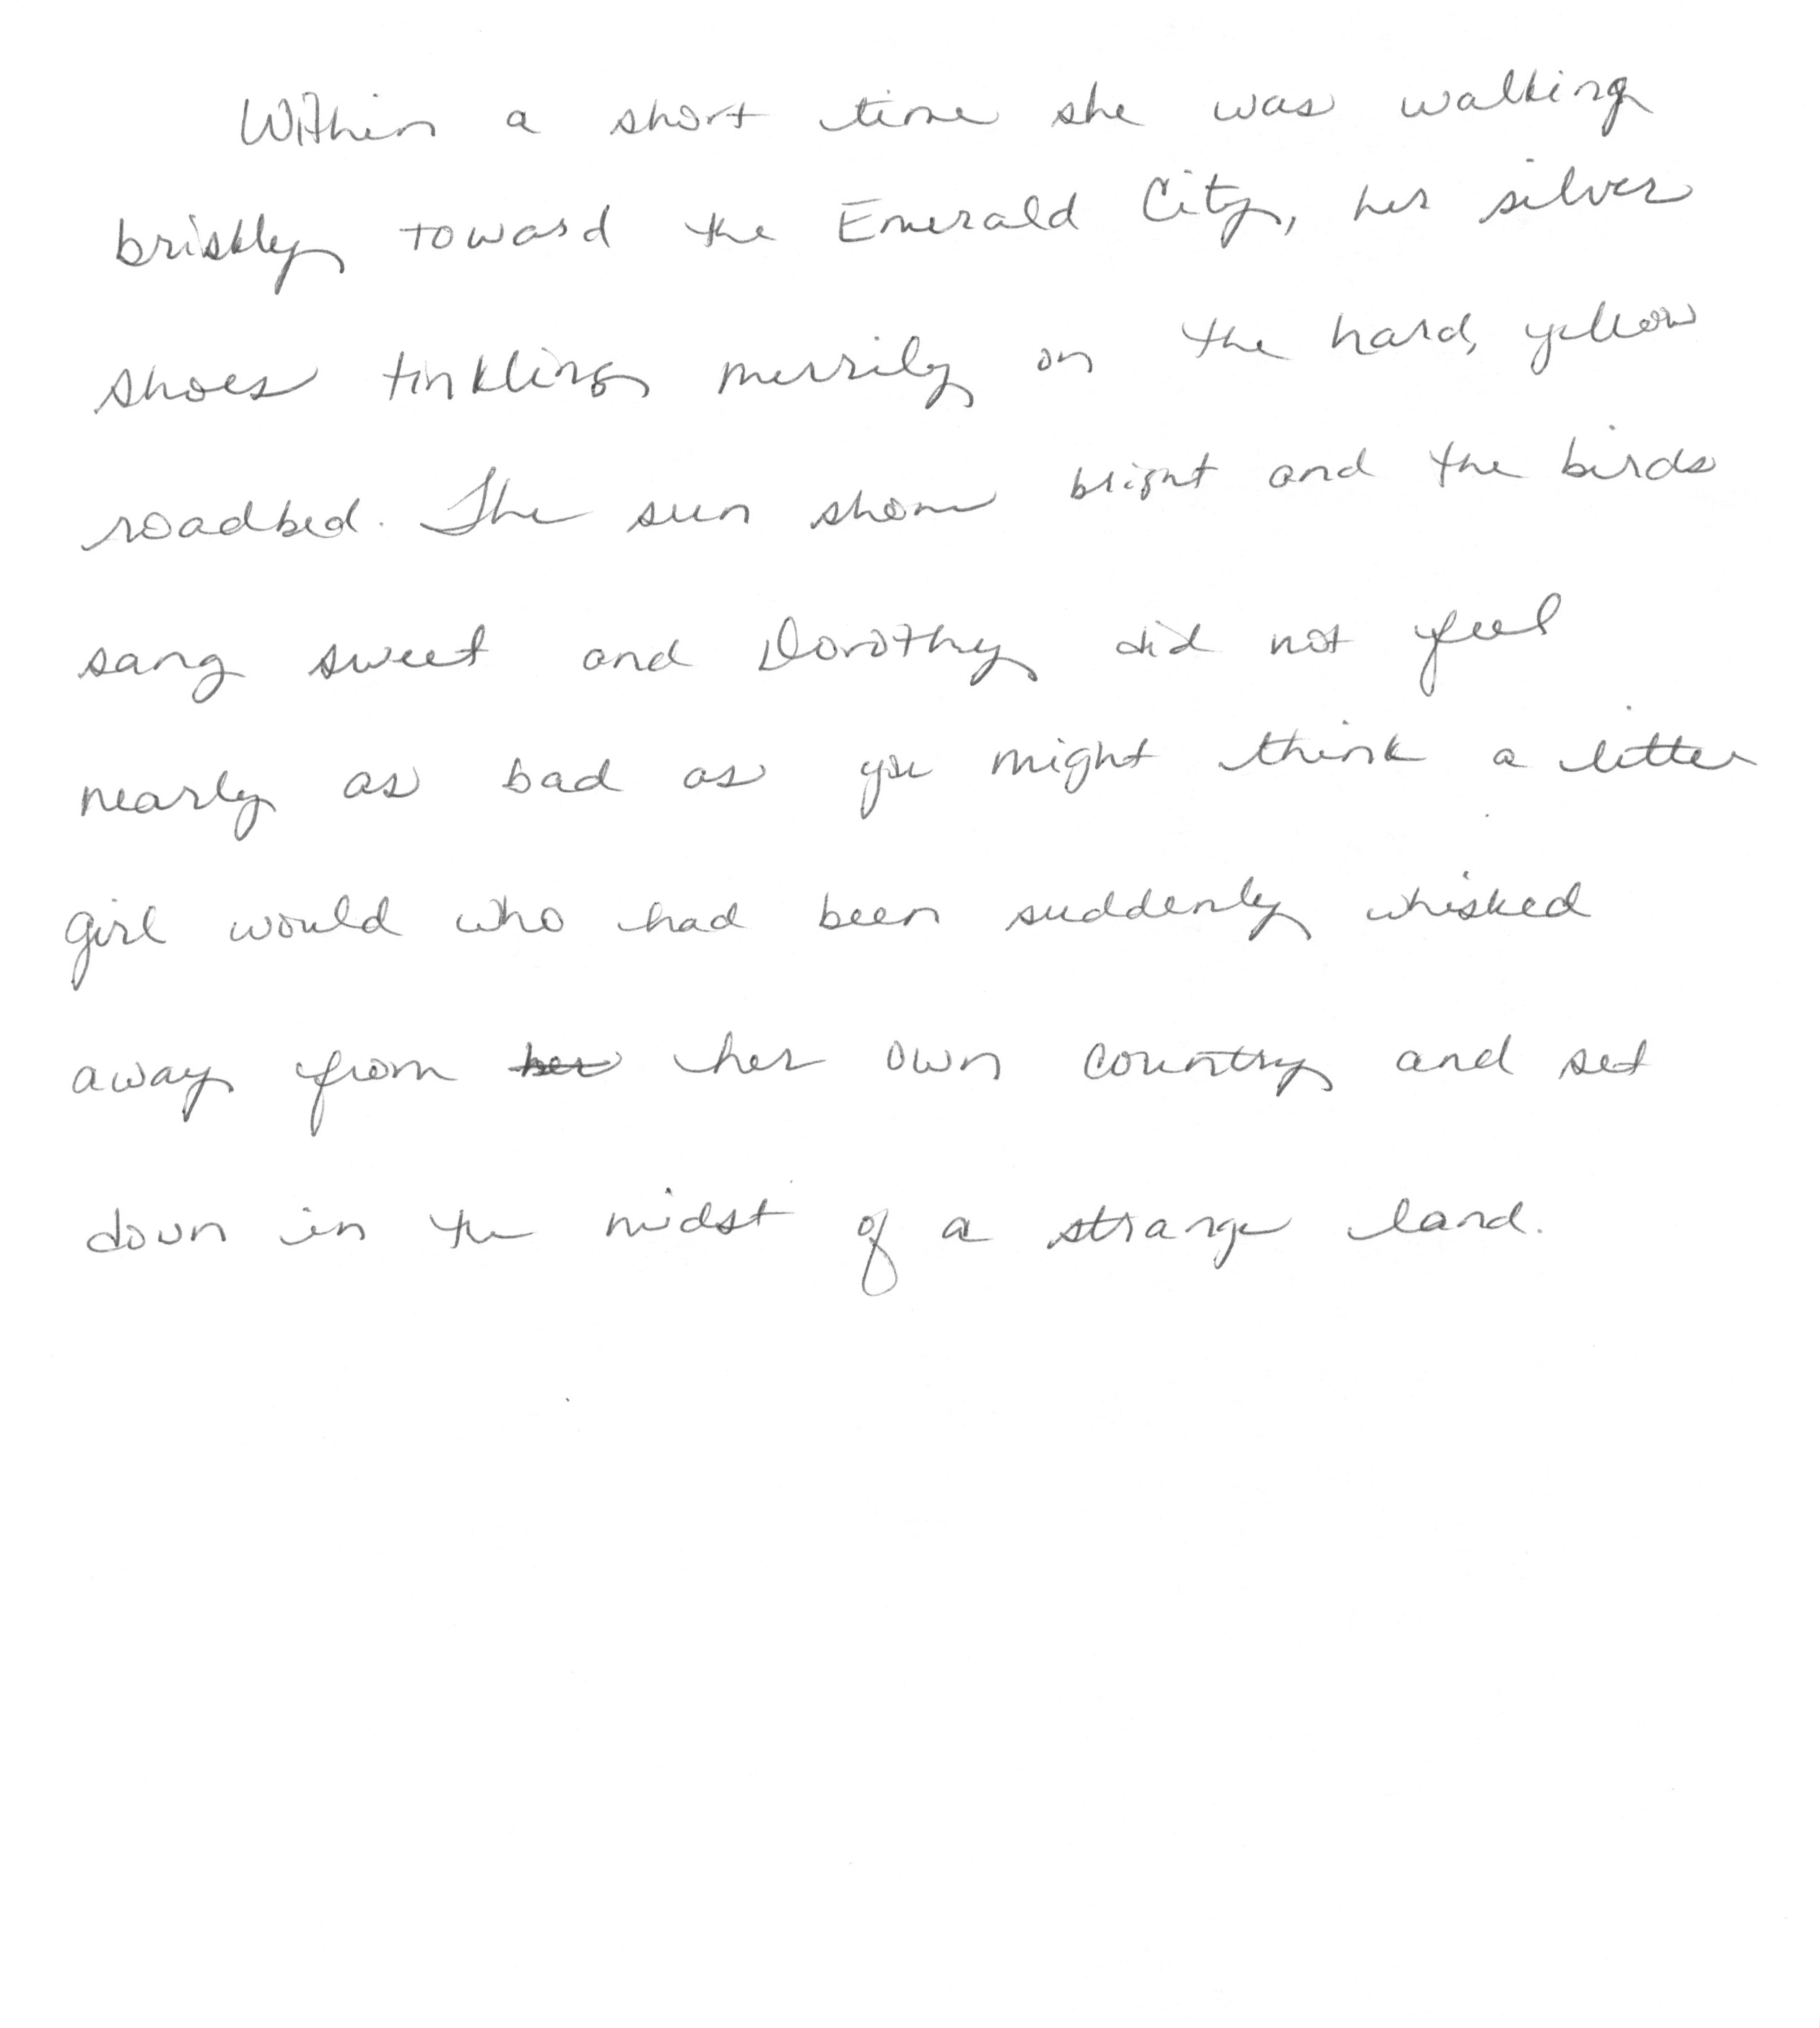 Within a short time she was walking
briskly toward the Emerald City, her silver
shoes tinkling merrily on the hard, yellow
roadbed. The sun shone bright and the birds
sang sweet and Dorothy did not feel
nearly as bad as you might think a little
girl would who had been suddenly whisked
away from her her own country and set
down in the midst of a strange land.